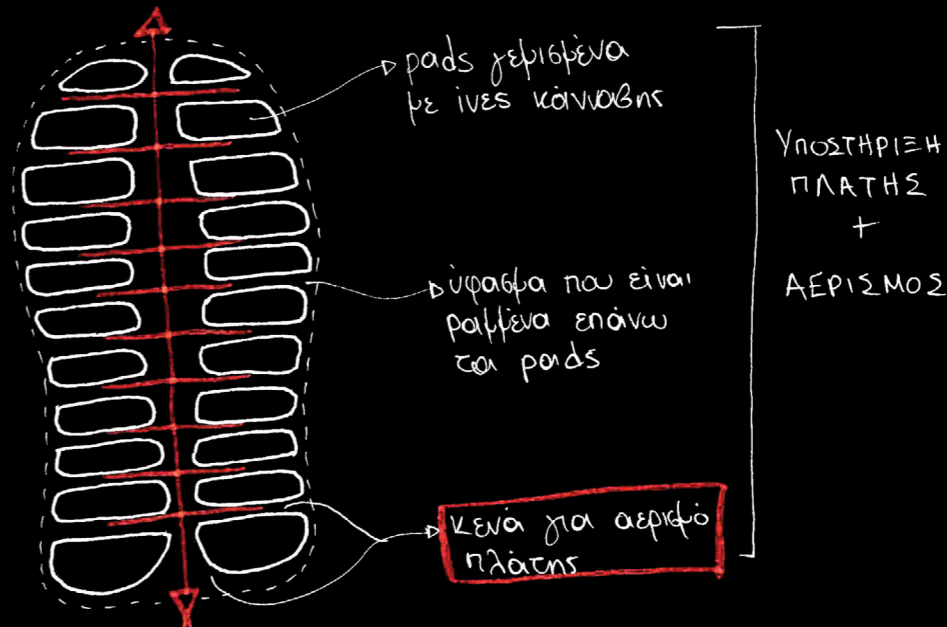 pads γεμισμένα
με ίνες κάνναβης
ύφασμα που είναι
ραμμένα επάνω
τα pads
κενά για αερισμό
πλάτης
ΥΠΟΣΤΗΡΙΞΗ
ΠΛΑΤΗΣ
+
ΑΕΡΙΣΜΟΣ